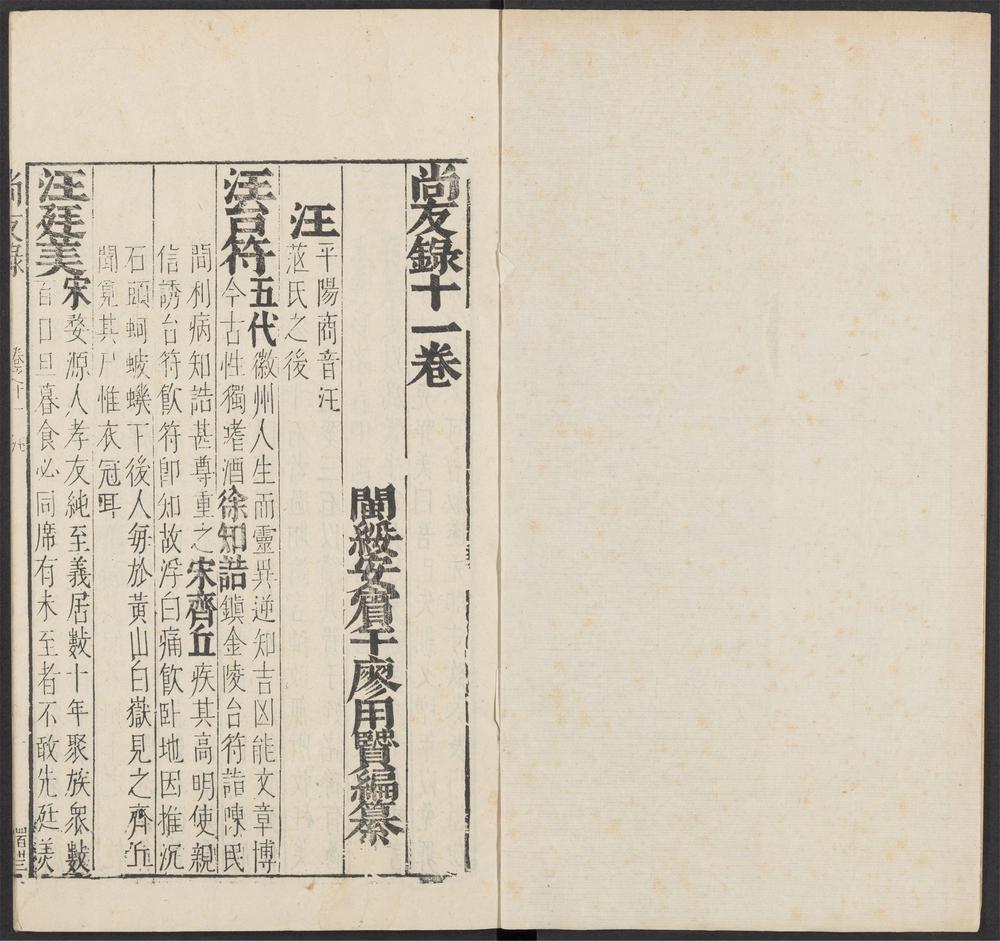 尚友錄十一卷
閩綏安賓于廖用賢編纂
汪
平陽商音汪
蒞氏之後
汪台符五代徽州人生而靈異逆知吉凶能文章博
今古性獨嗜酒徐知誥鎮金陵台符詣陳民
間利病知誥甚尊重之宋齊丘疾其高明使親
信誘台符飲符卽知故浮白痛飲卧地因推沉
石頭蚵蚾磯下後人每於黃山白嶽見之齊丘
聞覓其尸惟衣冠耳
汪廷美宋婺源人孝友純至義居數十年聚族衆數
百口旦暮食必同席有未至者不敢先廷美
尚友錄 卷之十一